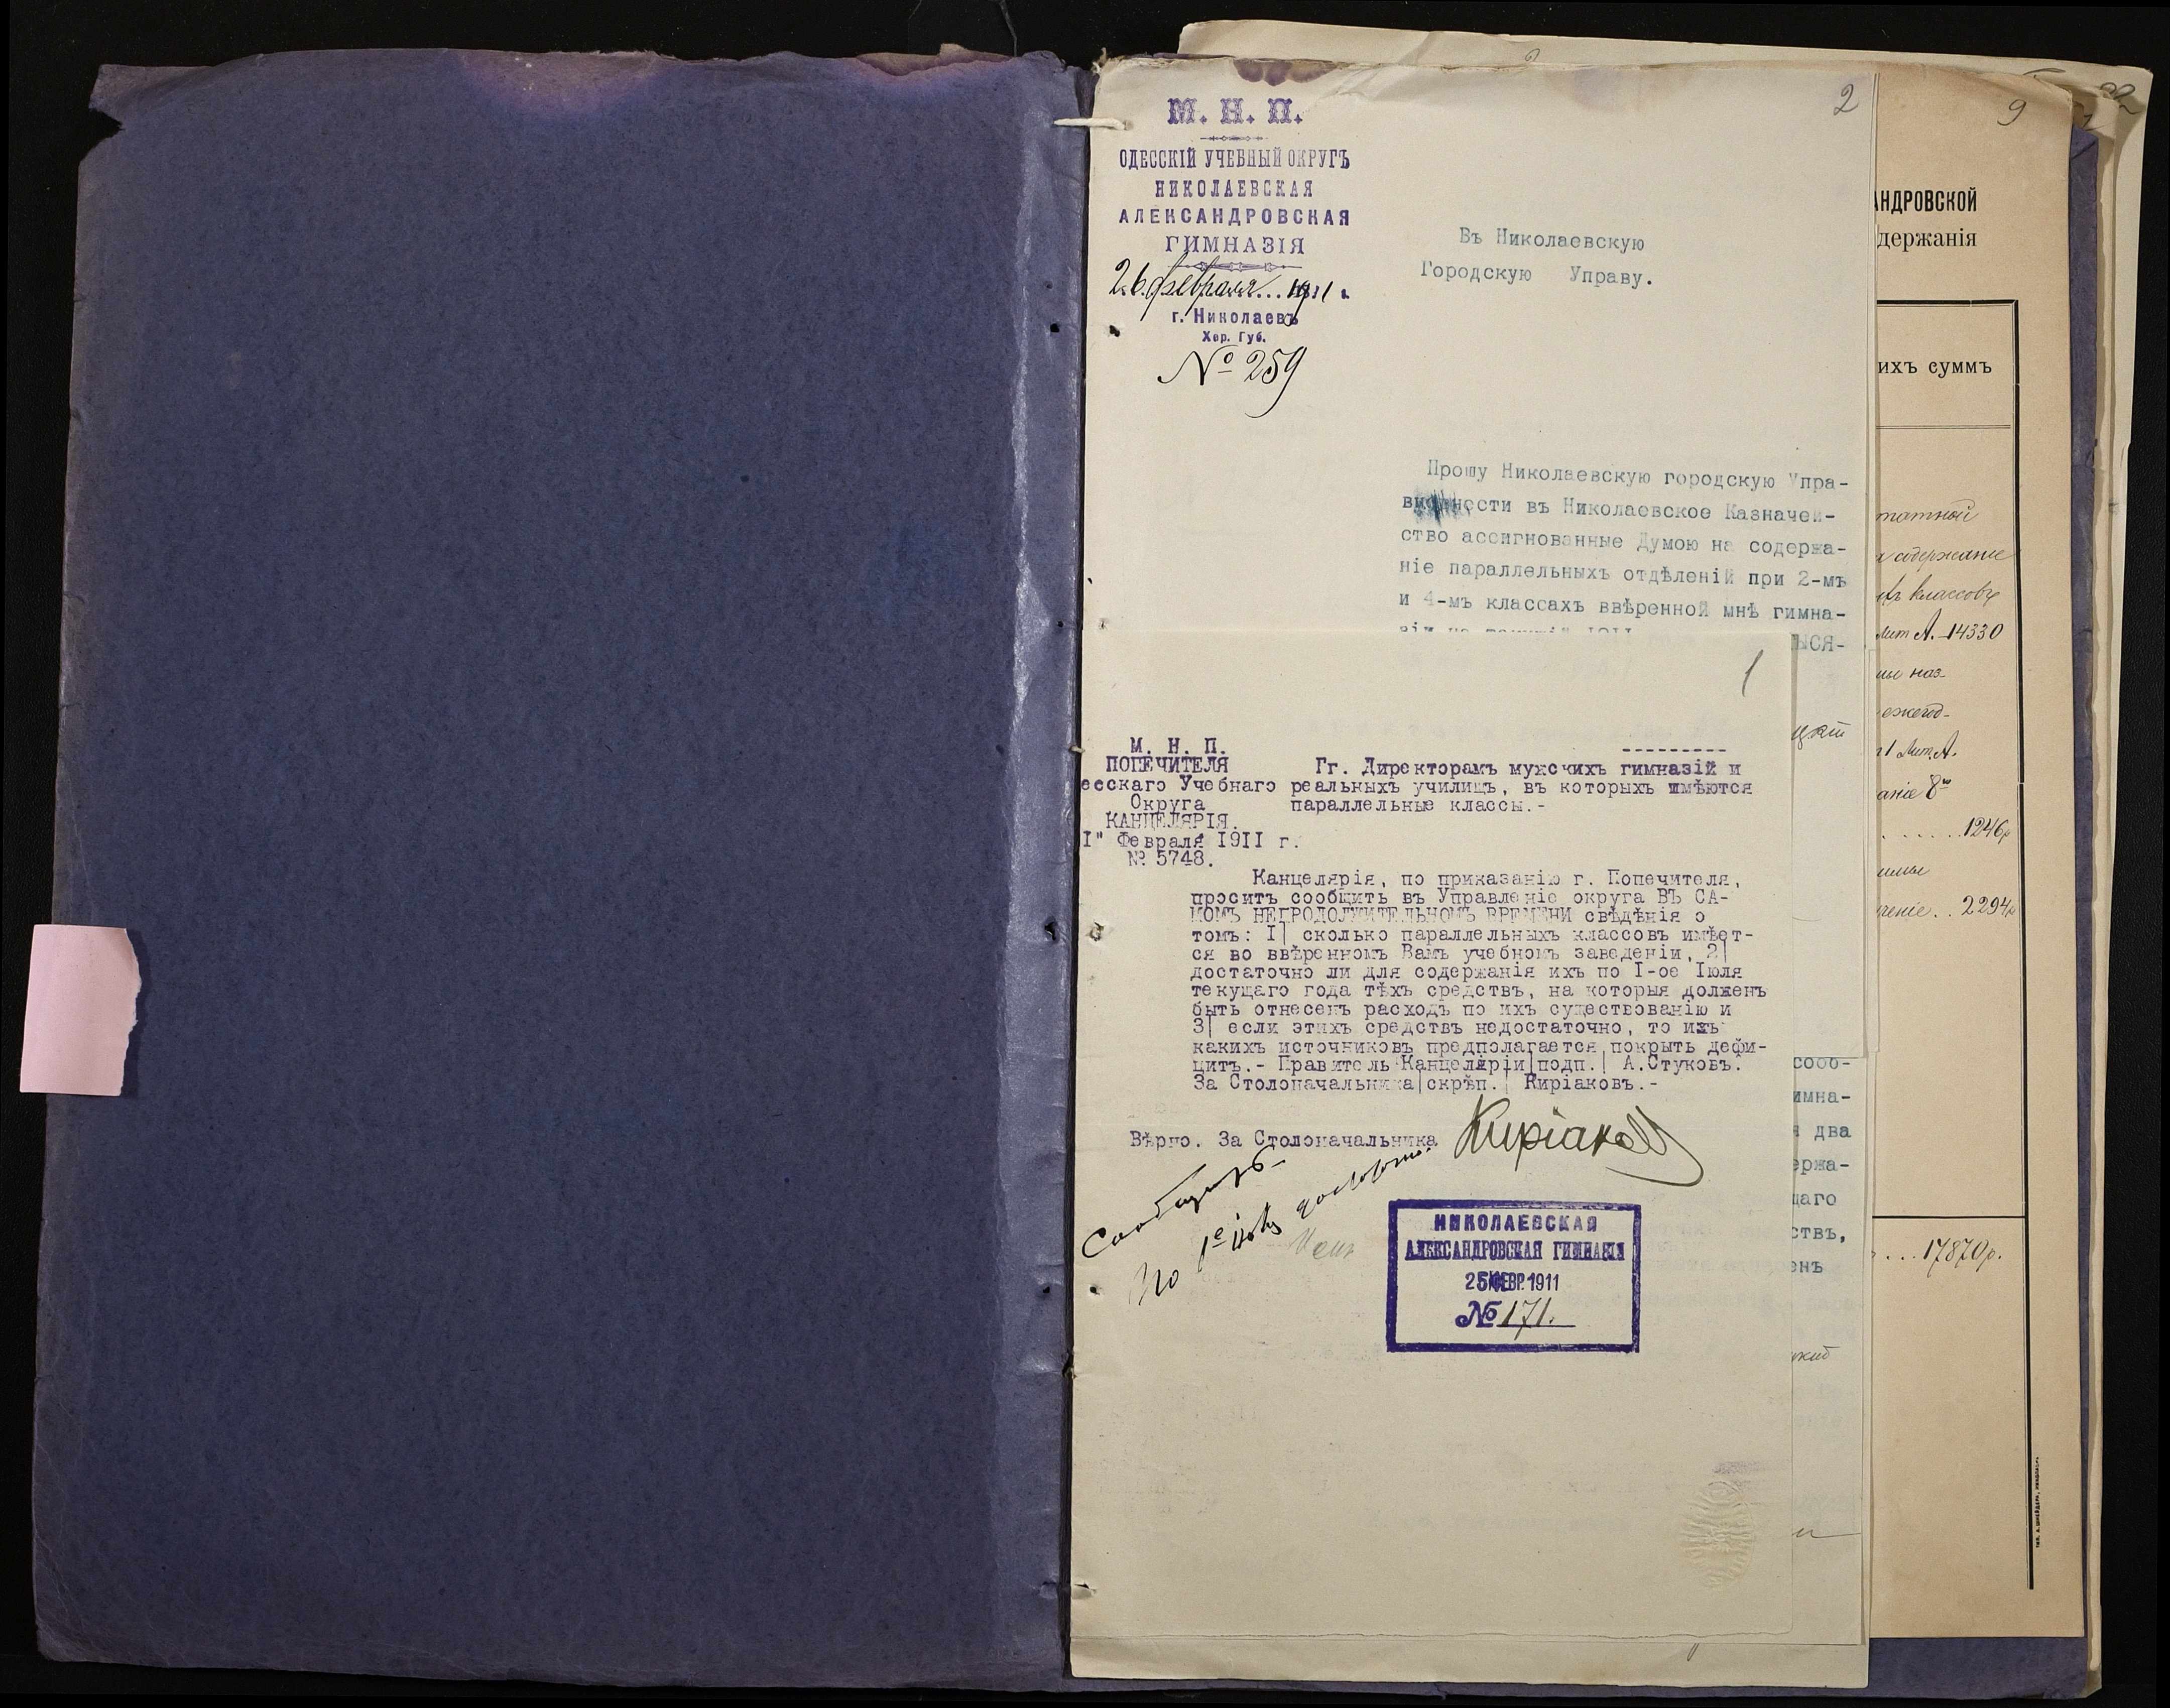 2
М. Н. П.
ОДЕССКІЙ УЧЕБНЫЙ ОКРУГЪ
НИКОЛАЕВСКАЯ
АЛЕКСАНДРОВСКАЯ
ГИМНАЗІЯ
26 февраля 1911 г.
г. Николаевъ
Хер. Губ.
№ 259
Въ Николаевскую
Городскую Управу.
Прошу Николаевскую городскую Упра-
внести въ Николаевское Казначей-
ство ассигнованные Думою на содержа-
ніе параллельныхъ отдѣленій при 2-мъ
и 4-мъ классахъ ввѣренной мнѣ гимна-
ЫСЯ-
1
М. Н. П.
ПОПЕЧИТЕЛЯ
есскаго Учебнаго
Округа
КАНЦЕЛЯРІЯ.
I" Февраля 1911 г.
№ 5748.
Гг. Директорамъ мужскихъ гимназій и
реальныхъ училищъ, въ которыхъ имѣются
параллельные классы.-
Канцелярія, по приказанію г. Попечителя,
проситъ сообщить въ Управленіе округа ВЪ СА-
МОМЪ НЕПРОДОЛЖИТЕЛЬНОМЪ ВРЕМЕНИ свѣдѣнія о
томъ: I| сколько параллельныхъ классовъ имѣет-
ся во ввѣренномъ Вамъ учебномъ заведеніи, 2|
достаточно ли для содержанія ихъ по I-ое Іюля
текущаго года тѣхъ средствъ, на которыя долженъ
быть отнесенъ расходъ по ихъ существованію и
3| если этихъ средствъ недостаточно, то изъ
какихъ источниковъ предполагается покрыть дефи-
цитъ.- Правитель Канцеляріи|подп.| А.Стуковъ.
За Столоначальника|скрѣп.| Киріаковъ.-
Вѣрно. За Столоначальника Киріаковъ
Сообщить
По 1е
НИКОЛАЕВСКАЯ
АЛЕКСАНДРОВСКАЯ ГИМНАЗІЯ
25 ФЕВР. 1911
№ 171.
сооб-
имна-
два
ержа-
щаго
ствъ,
енъ
9
АНДРОВСКОЙ
держанія
ихъ суммъ
татной
содержаніе
классовъ
Лит А. 14330
наз-
ежегод-
1 Лит. А.
аніе 8го
1246р
ченіе . . 2294р
. . . 17870р.